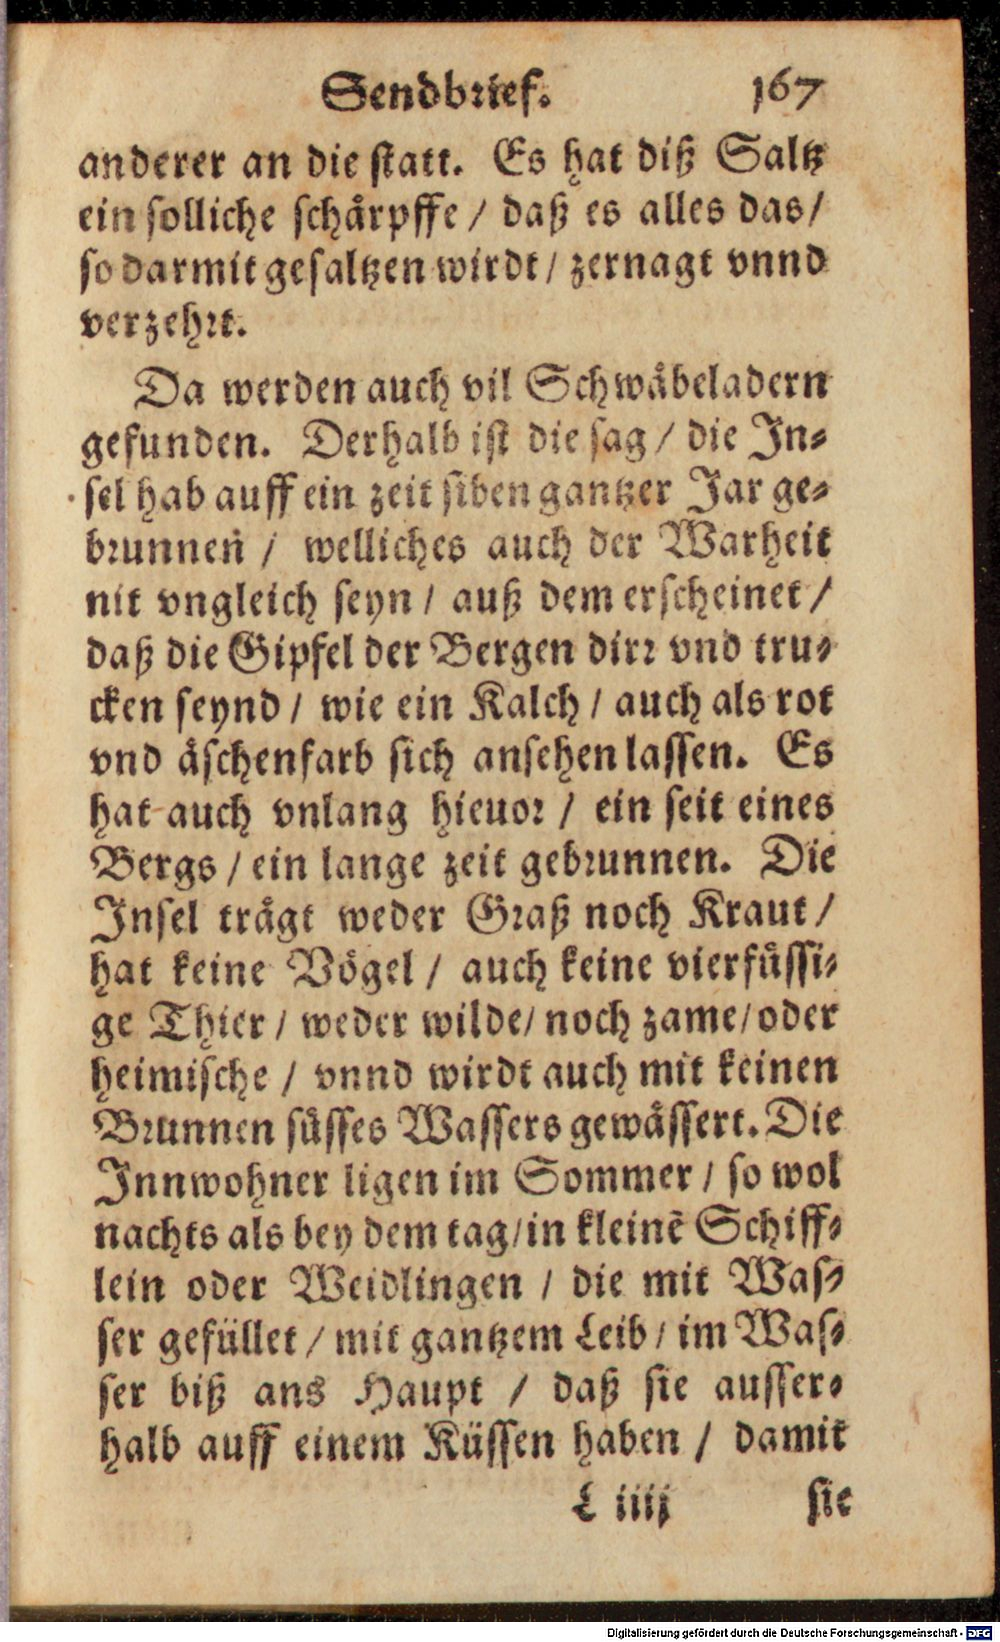 Sendbrief. 167
anderer an die statt. Es hat diß Saltz
ein solliche schärpffe / daß es alles das /
so darmit gesaltzen wirdt / zernagt vnnd
verzehrt.
Da werden auch vil Schwäbeladern
gefunden. Derhalb ist die sag / die In-
sel hab auff ein zeit siben gantzer Jar ge-
brunnen / welliches auch der Warheit
nit vngleich seyn / auß dem erscheinet /
daß die Gipfel der Bergen dirr vnd tru-
cken seynd / wie ein Kalch / auch als rot
vnd äschenfarb sich ansehen lassen. Es
hat auch vnlang hieuor / ein seit eines
Bergs / ein lange zeit gebrunnen. Die
Insel trägt weder Graß noch Kraut /
hat keine Vögel / auch keine vierfüssi-
ge Thier / weder wilde / noch zame / oder
heimische / vnnd wirdt auch mit keinen
Brunnen süsses Wassers gewässert. Die
Innwohner ligen im Sommer / so wol
nachts als bey dem tag / in kleinē Schiff-
lein oder Weidlingen / die mit Was-
ser gefüllet / mit gantzem Leib / im Was-
ser biß ans Haupt / daß sie ausser-
halb auff einem Küssen haben / damit
L iiij sie
Digitalisierung gefördert durch die Deutsche Forschungsgemeinschaft - DFG